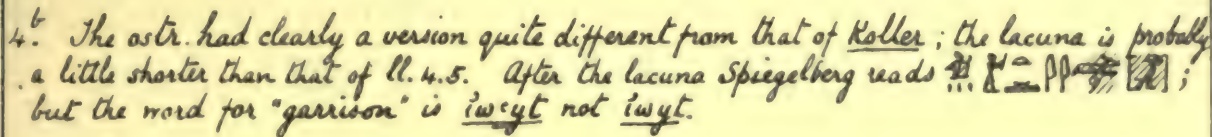 4.b The ostr. had clearly a version quite different from that of Koller; the lacuna is probably
a little shorter than that of ll. 4.5. After the lacuna Spiegelberg reads ;
but the word for "garrison" is iwꜥyt not iwyt.